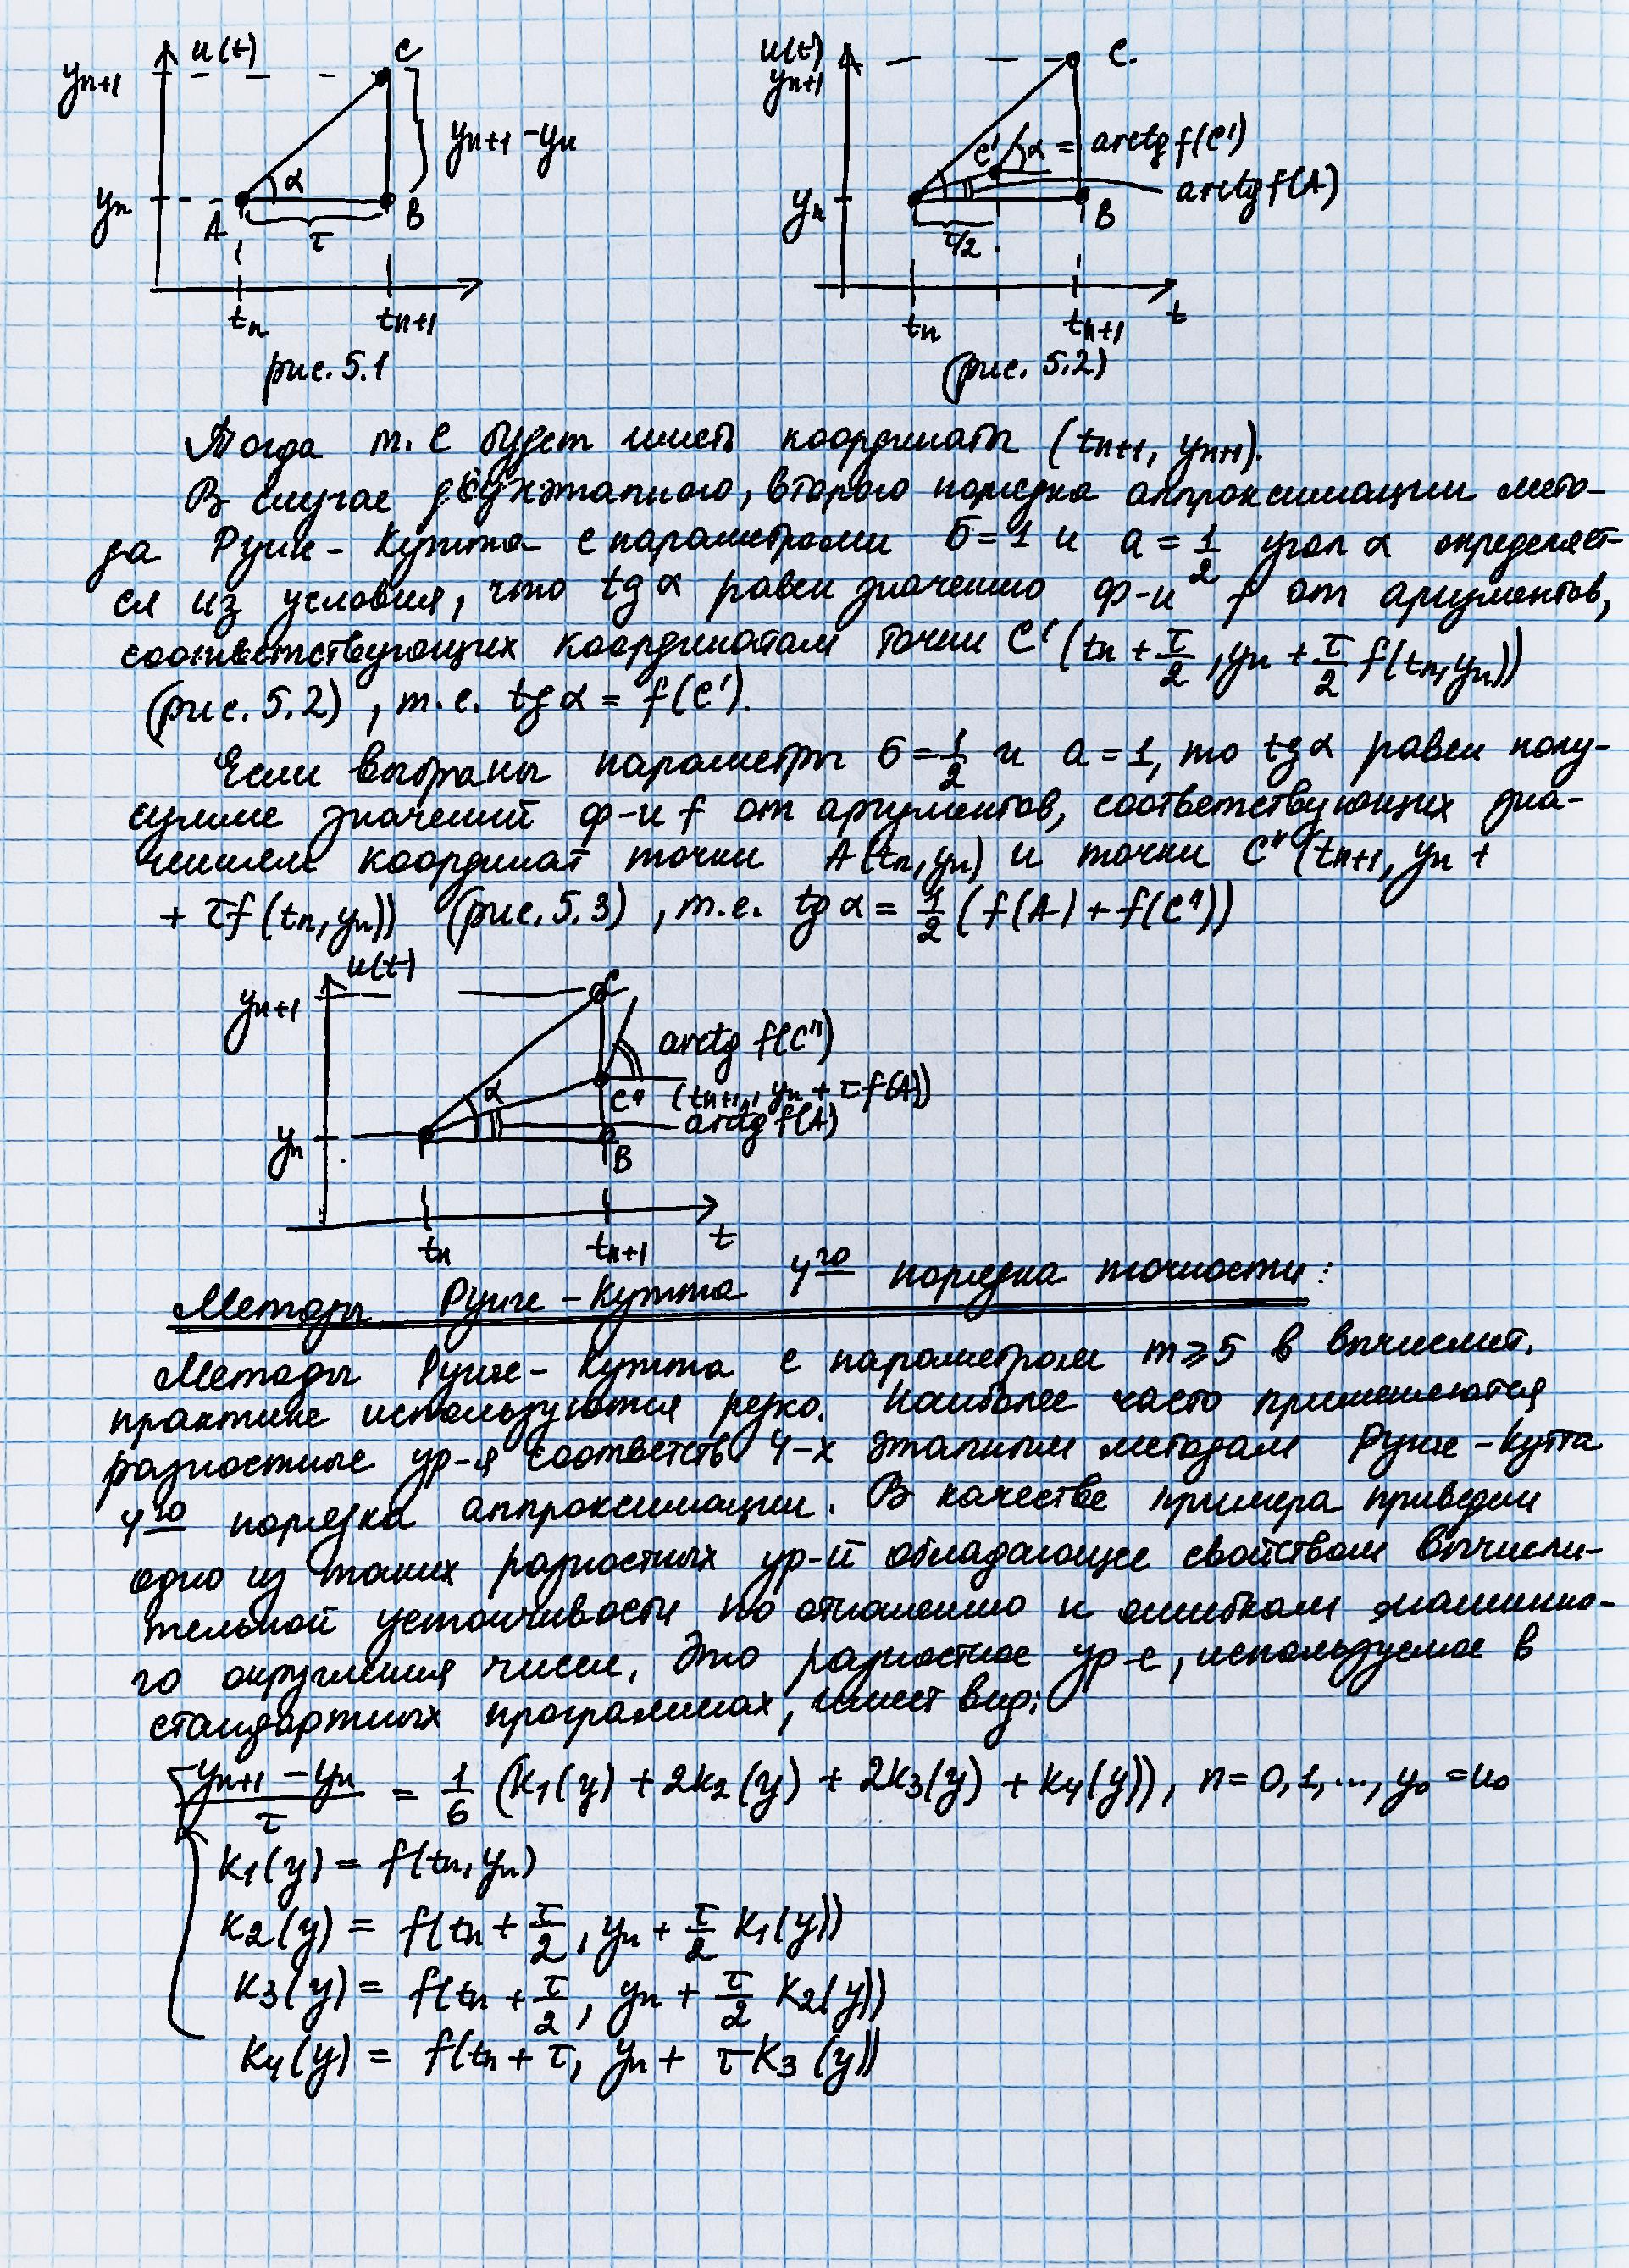 u(t)
C
yn+1
yn+1 - yn
α
yn
A
B
τ
tn
tn+1
рис. 5.1
u(t)
yn+1
C.
C'
α = arctg f(C')
arctg f(A)
yn
B
τ/2
tn
tn+1
t
(рис. 5.2)
Тогда т. C будет иметь координаты (tn+1, yn+1).
В случае двухэтапного, второго порядка аппроксимации мето-
да Рунге-Кутта с параметрами σ=1 и a = 1/2 угол α определяет-
ся из условия, что tg α равен значению ф-и f от аргументов,
соответствующих координатам точки C' (tn + τ/2, yn + τ/2 f(tn, yn))
(рис. 5.2), т.е. tg α = f(C').
Если выбраны параметры σ = 1/2 и a = 1, то tg α равен полу-
сумме значений ф-и f от аргументов, соответствующих зна-
чениям координат точки A(tn, yn) и точки C" (tn+1, yn +
+ τf(tn, yn)) (рис. 5.3), т.е. tg α = 1/2 (f(A) + f(C"))
u(t)
yn+1
C
arctg f(C")
α
C" (tn+1, yn + τf(A))
arctg f(A)
yn
B
tn
tn+1
t
Методы Рунге-Кутта 4го порядка точности:
Методы Рунге-Кутта с параметром m ≥ 5 в вычислит.
практике используются редко. Наиболее часто применяются
разностные ур-я соответств 4-х этапным методам Рунге-Кутта
4го порядка аппроксимации. В качестве примера приведем
одно из таких разностных ур-й обладающее свойством вычисли-
тельной устойчивости по отношению к ошибкам машинно-
го округления чисел. Это разностное ур-е, используемое в
стандартных программах, имеет вид:
(yn+1 - yn)/τ = 1/6 (k1(y) + 2k2(y) + 2k3(y) + k4(y)), n = 0, 1, ..., y0 = u0
k1(y) = f(tn, yn)
k2(y) = f(tn + τ/2, yn + τ/2 k1(y))
k3(y) = f(tn + τ/2, yn + τ/2 k2(y))
k4(y) = f(tn + τ, yn + τ k3(y))